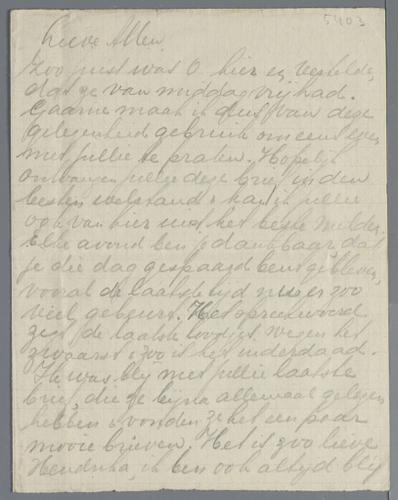 5403
Lieve Allen,
Zoo juist was O. hier en vertelde,
dat ze van middag vrij had.
Gaarne maak ik dus van deze
gelegenheid gebruik om eens even
met jullie te praten. Hopelijk
ontvangen jullie deze brief in den
besten welstand & kan ik jullie
ook van hier uit het beste melden.
Elke avond ben je dankbaar dat
je die dag gespaard bent gebleven,
vooral de laatste tijd nu er zoo
veel gebeurt. Het spreekwoord
zegt de laatste loodjes wegen het
zwaarst & zoo is het inderdaad.
Ik was blij met jullie laatste
brief, die ze bijna allemaal gelezen
hebben & vonden ze het een paar
mooie brieven. Het is zoo lieve
Hendrika, ik ben ook altijd blij